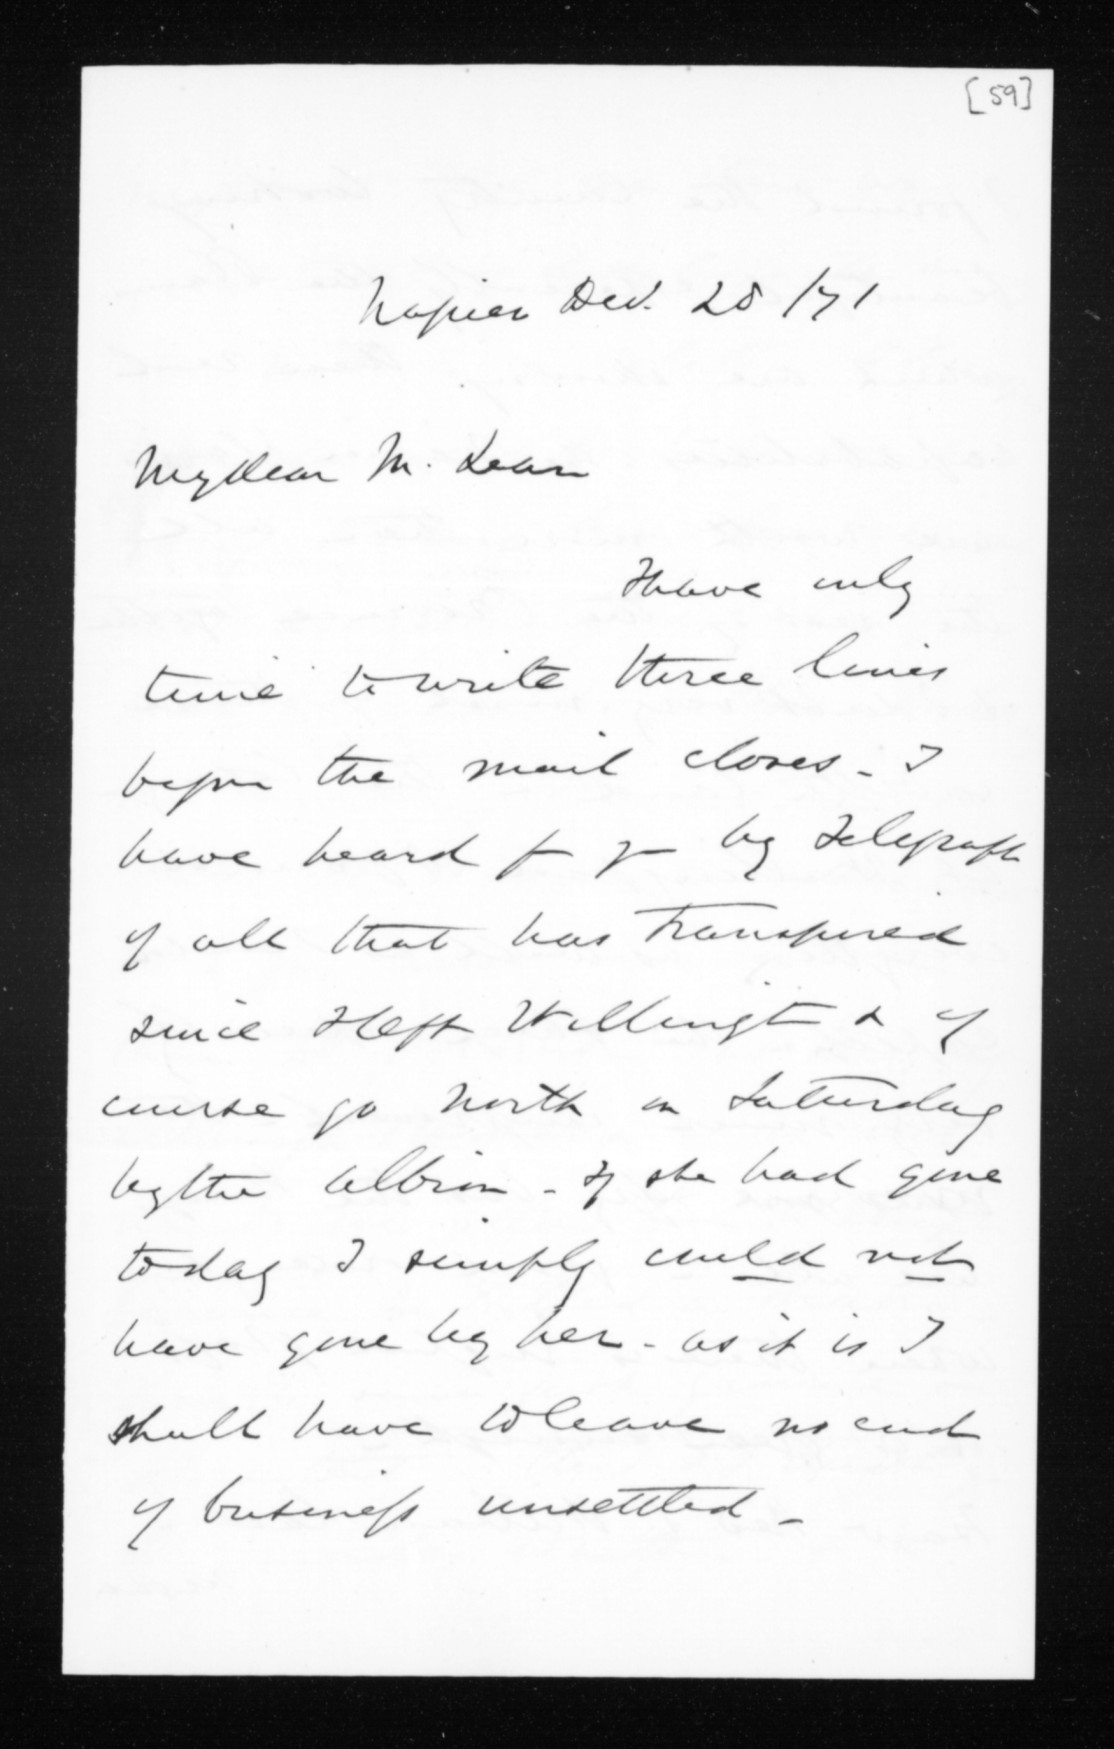 [59]
Napier Dec. 28/71
My dear M. Lean
I have only
time to write three lines
before the mail closes - I
have heard fm yr by Telegraph
of all that has transpired
since I left Wellington & of
course go North on Saturday
by the Albion - If she had gone
today I simply could not
have gone by her - as it is I
shall have to leave no end
of business unsettled -